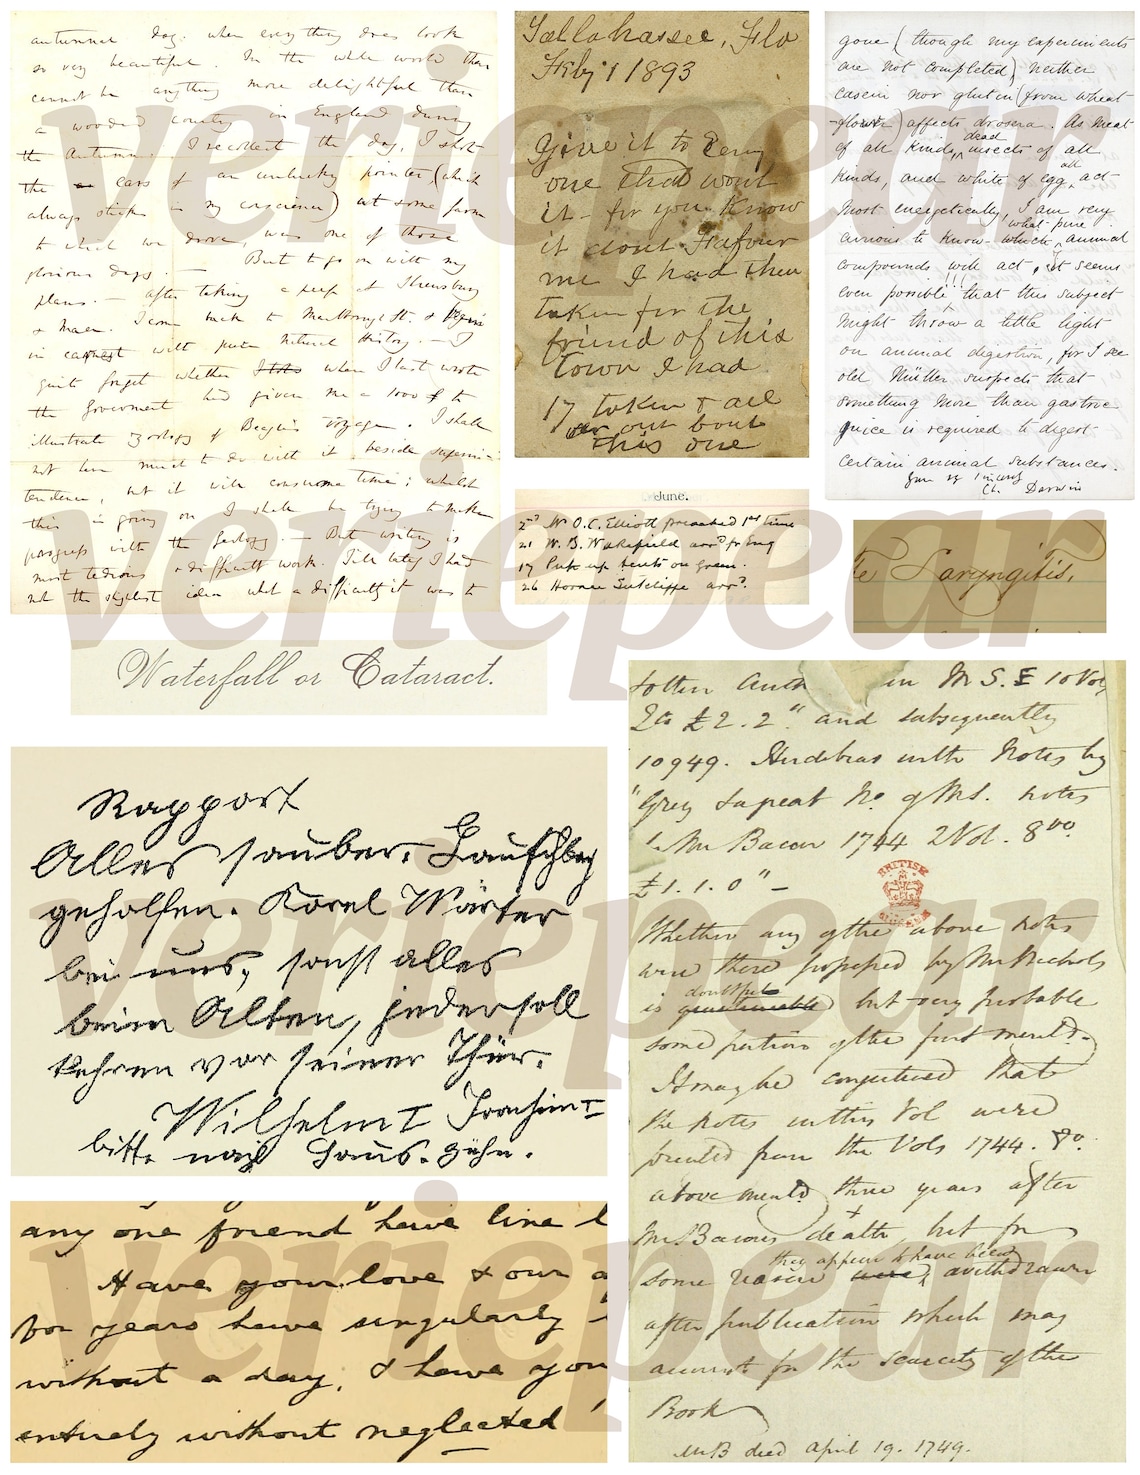 autumnal day. when every thing does look
so very beautiful. In the whole world there
cannot be anything more delightful than
a wooded country in England during
the Autumn. I recollect the day, I shot
the ears of an unlucky pointer, (which
always sticks in my conscience) at some farm
to which we drove, was one of those
glorious days. — But to go on with my
plans. — after taking a peep at Shrewsbury
& Maer. I come back to Marlborough St. & begin
in earnest with pure Natural History. — I
quite forget whether when I last wrote
the Government had given me a 1000£ to
illustrate zoology of Beagle's voyage. I shall
not have much to do with it beside superin-
tendence, but it will consume time; whilst
this is going on I shall be trying to make
progress with the geology. — But writing is
most tedious & difficult work. Till lately I had
not the slightest idea what a difficulty it was to
Tallahassee, Flo
Feby 1 1893
Give it to Eeny
one that wont
it - for you Know
it dont Flafour
me I had then
taken for the
friend of this
Town I had
17 taken & all
our out bout
this one
gone (though my experiments
are not completed) neither
casein nor gluten (from wheat
flour) affects drosera. As meat
of all kinds, dead insects of all
kinds, and white of egg, all act
most energetically, I am very
curious to know what pure animal
compounds will act; it seems
even possible that this subject
might throw a little light
on animal digestion, for I see
old Müller suspects that
something more than gastric
juice is required to digest
certain animal substances.
yours vy sincerely
Ch. Darwin
June.
2nd Mr O.C. Elliott preached 1st time
21 W. B. Wakefield arrd fr Eng
17 Put up tents on green.
26 Horace Sutcliffe arrd.
te Laryngitis.
Waterfall or Cataract.
Rapport
Alles sauber.
geholfen. Karel Wärter
bei uns, sonst alles
beim Alten, jeder soll
kehren vor seiner Thür.
Wilhelm I Joachim I
bitte nach Haus. gehn.
any one friend have line
Have your love & our
for years have singularly
without a day. I have you
entirely without neglected
in M.S. £ 10 Vol
2ds £2.2" and subsequently
10949. Hudibras with Notes by
"Grey Sapeat No. of MS. notes
by Mr Bacon 1744 2 Vol. 8vo.
£1.1.0" —
BRITISH
MUSEUM
Whether any of the above notes
were those proposed by Mr Nichols
is doubtful but very probable
some portion of the first mentd.
It may be conjectured that
the notes in this Vol were
printed from the Vols 1744. 8o.
above mentd three years after
Mr. Bacons death, but for
some reason they appear to have been withdrawn
after publication which may
account for the scarcity of the
Book
MB died April 19. 1749.
veriepear
veriepear
veriepear
veriepear